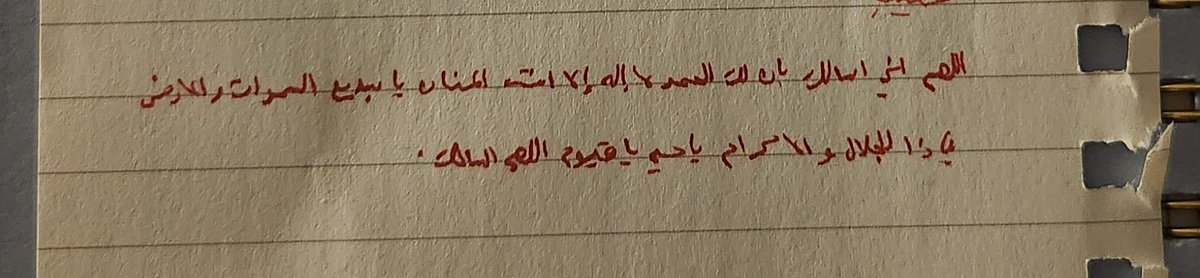 اللهم اني اسالك بان لك الحمد لا إله إلا انت المنان يا بديع السموات والارض
يا ذا الجلال والاكرام يا حي يا قيوم اللهم اسالك .